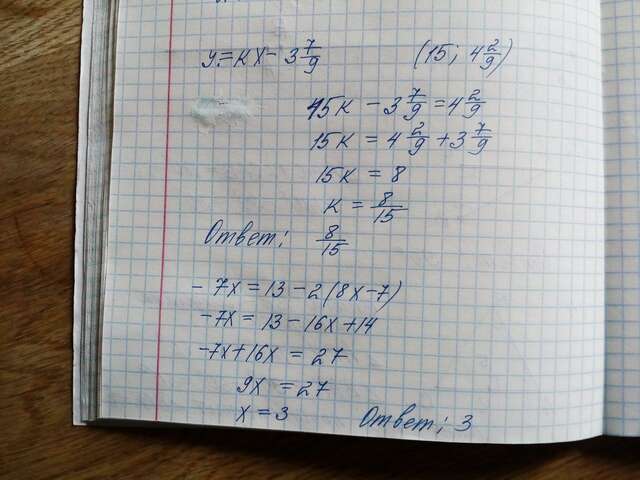 y = kx - 3 7/9 (15; 4 2/9)
15k - 3 7/9 = 4 2/9
15k = 4 2/9 + 3 7/9
15k = 8
k = 8/15
Ответ: 8/15
-7x = 13 - 2(8x-7)
-7x = 13 - 16x + 14
-7x + 16x = 27
9x = 27
x = 3 Ответ: 3